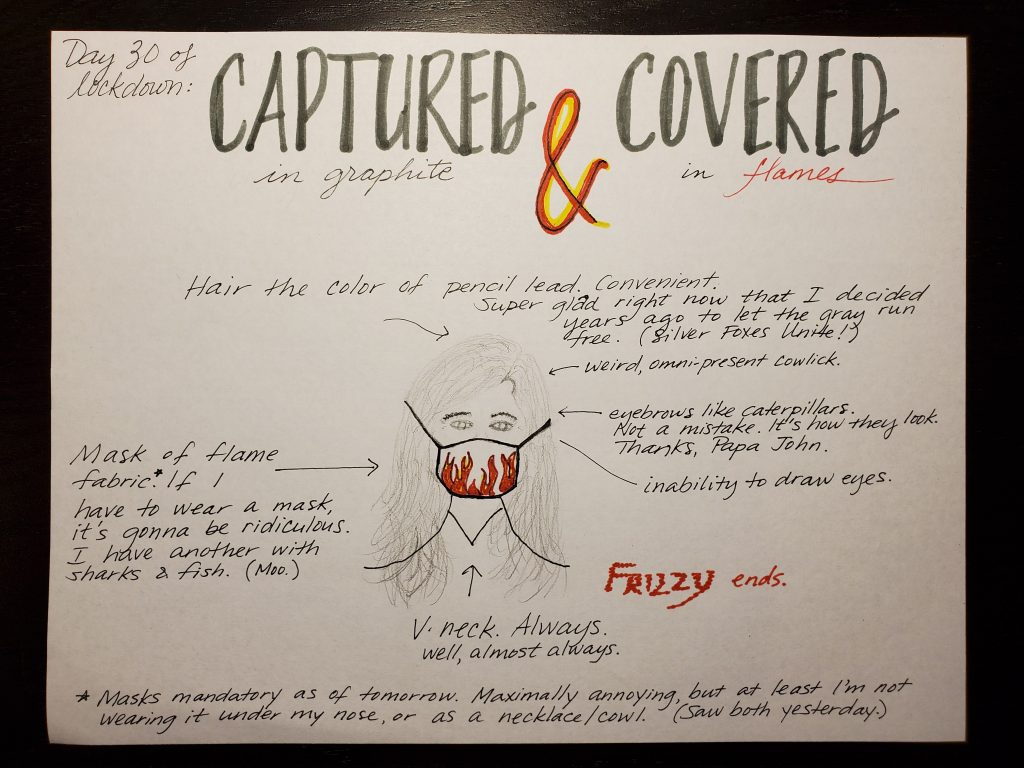 Day 30 of
lockdown:
CAPTURED & COVERED
in graphite
in flames
Hair the color of pencil lead. Convenient.
Super glad right now that I decided
years ago to let the gray run
free. (Silver Foxes Unite!)
weird, omni-present cowlick.
eyebrows like caterpillars.
Not a mistake. It's how they look.
Thanks, Papa John.
inability to draw eyes.
Mask of flame
fabric.* If I
have to wear a mask,
it's gonna be ridiculous.
I have another with
sharks & fish. (Moo.)
FRIZZY ends.
V-neck. Always.
well, almost always.
* Masks mandatory as of tomorrow. Maximally annoying, but at least I'm not
wearing it under my nose, or as a necklace/cowl. (Saw both yesterday.)